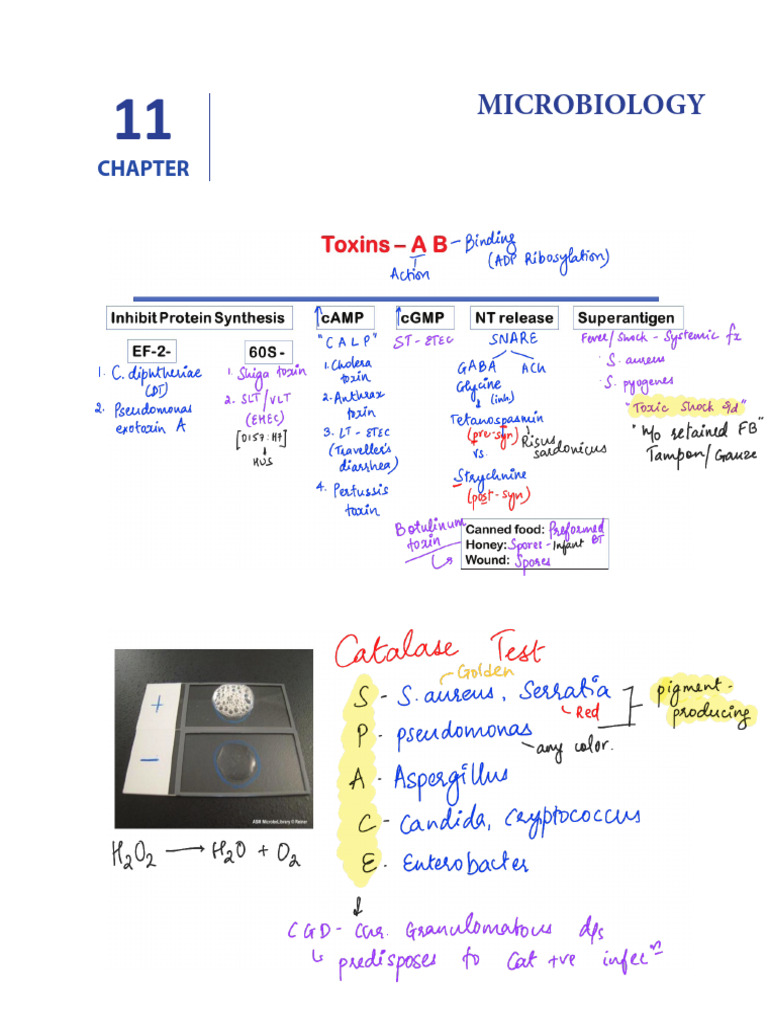 11
CHAPTER
MICROBIOLOGY
Toxins – A B – Binding
(ADP Ribosylation)
Action
Inhibit Protein Synthesis
EF-2-
1. C. diphtheriae
(DT)
2. Pseudomonas
exotoxin A
60S -
1. Shiga toxin
2. SLT/VLT
(EHEC)
[O157:H7]
↓
HUS
↑cAMP
"CALP"
1. Cholera
toxin
2. Anthrax
toxin
3. LT - ETEC
(Traveller's
diarrhea)
4. Pertussis
toxin
↑cGMP
ST - ETEC
NT release
SNARE
GABA ACh
Glycine
↓ (inh)
Tetanospasmin
(pre-syn) Risus
sardonicus
vs.
Strychnine
(post-syn)
Superantigen
Fever/Shock - Systemic fx
· S. aureus
· S. pyogenes
"Toxic Shock S/d"
* h/o retained FB"
Tampon/Gauze
Botulinum
toxin
Canned food: Preformed
Honey: Spores - Infant BT
Wound: Spores
Catalase Test
Golden
S - S. aureus, Serratia
Red
P - pseudomonas
any color.
pigment-
producing
A - Aspergillus
C - Candida, Cryptococcus
E - Enterobacter
↓
CGD - Chr. Granulomatous d/s
↳ predisposes to Cat +ve infecⁿ
+
–
ASM MicrobeLibrary © Reiner
H₂O₂ ⟶ H₂O + O₂